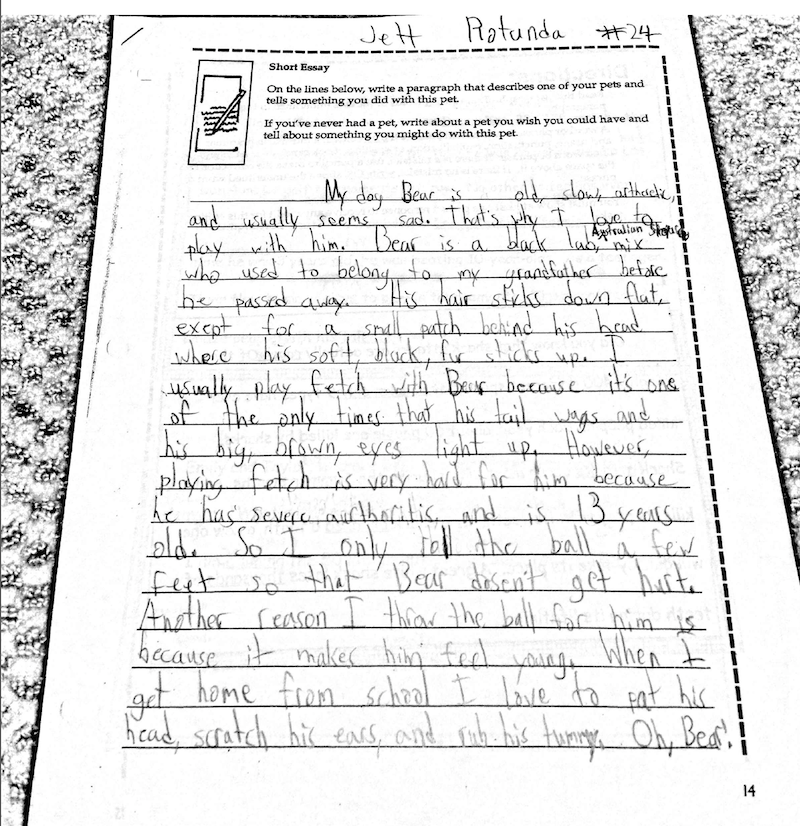 Jett Rotunda #24
Short Essay
On the lines below, write a paragraph that describes one of your pets and
tells something you did with this pet.
If you've never had a pet, write about a pet you wish you could have and
tell about something you might do with this pet.
My dog Bear is old, slow, arthactic,
and usually seems sad. That's why I love to
play with him. Bear is a black lab, Australian Shepard mix
who used to belong to my grandfather before
he passed away. His hair sticks down flat,
exept for a small patch behind his head
where his soft, black, fur sticks up. I
usually play fetch with Bear because it's one
of the only times that his tail wags and
his big, brown, eyes light up. However,
playing fetch is very hard for him because
he has severe aurthoritis, and is 13 years
old. So I only roll the ball a few
feet so that Bear dosen't get hurt.
Another reason I throw the ball for him is
because it makes him feel young. When I
get home from school I love to pat his
head, scratch his ears, and rub his tummy. Oh, Bear!
14